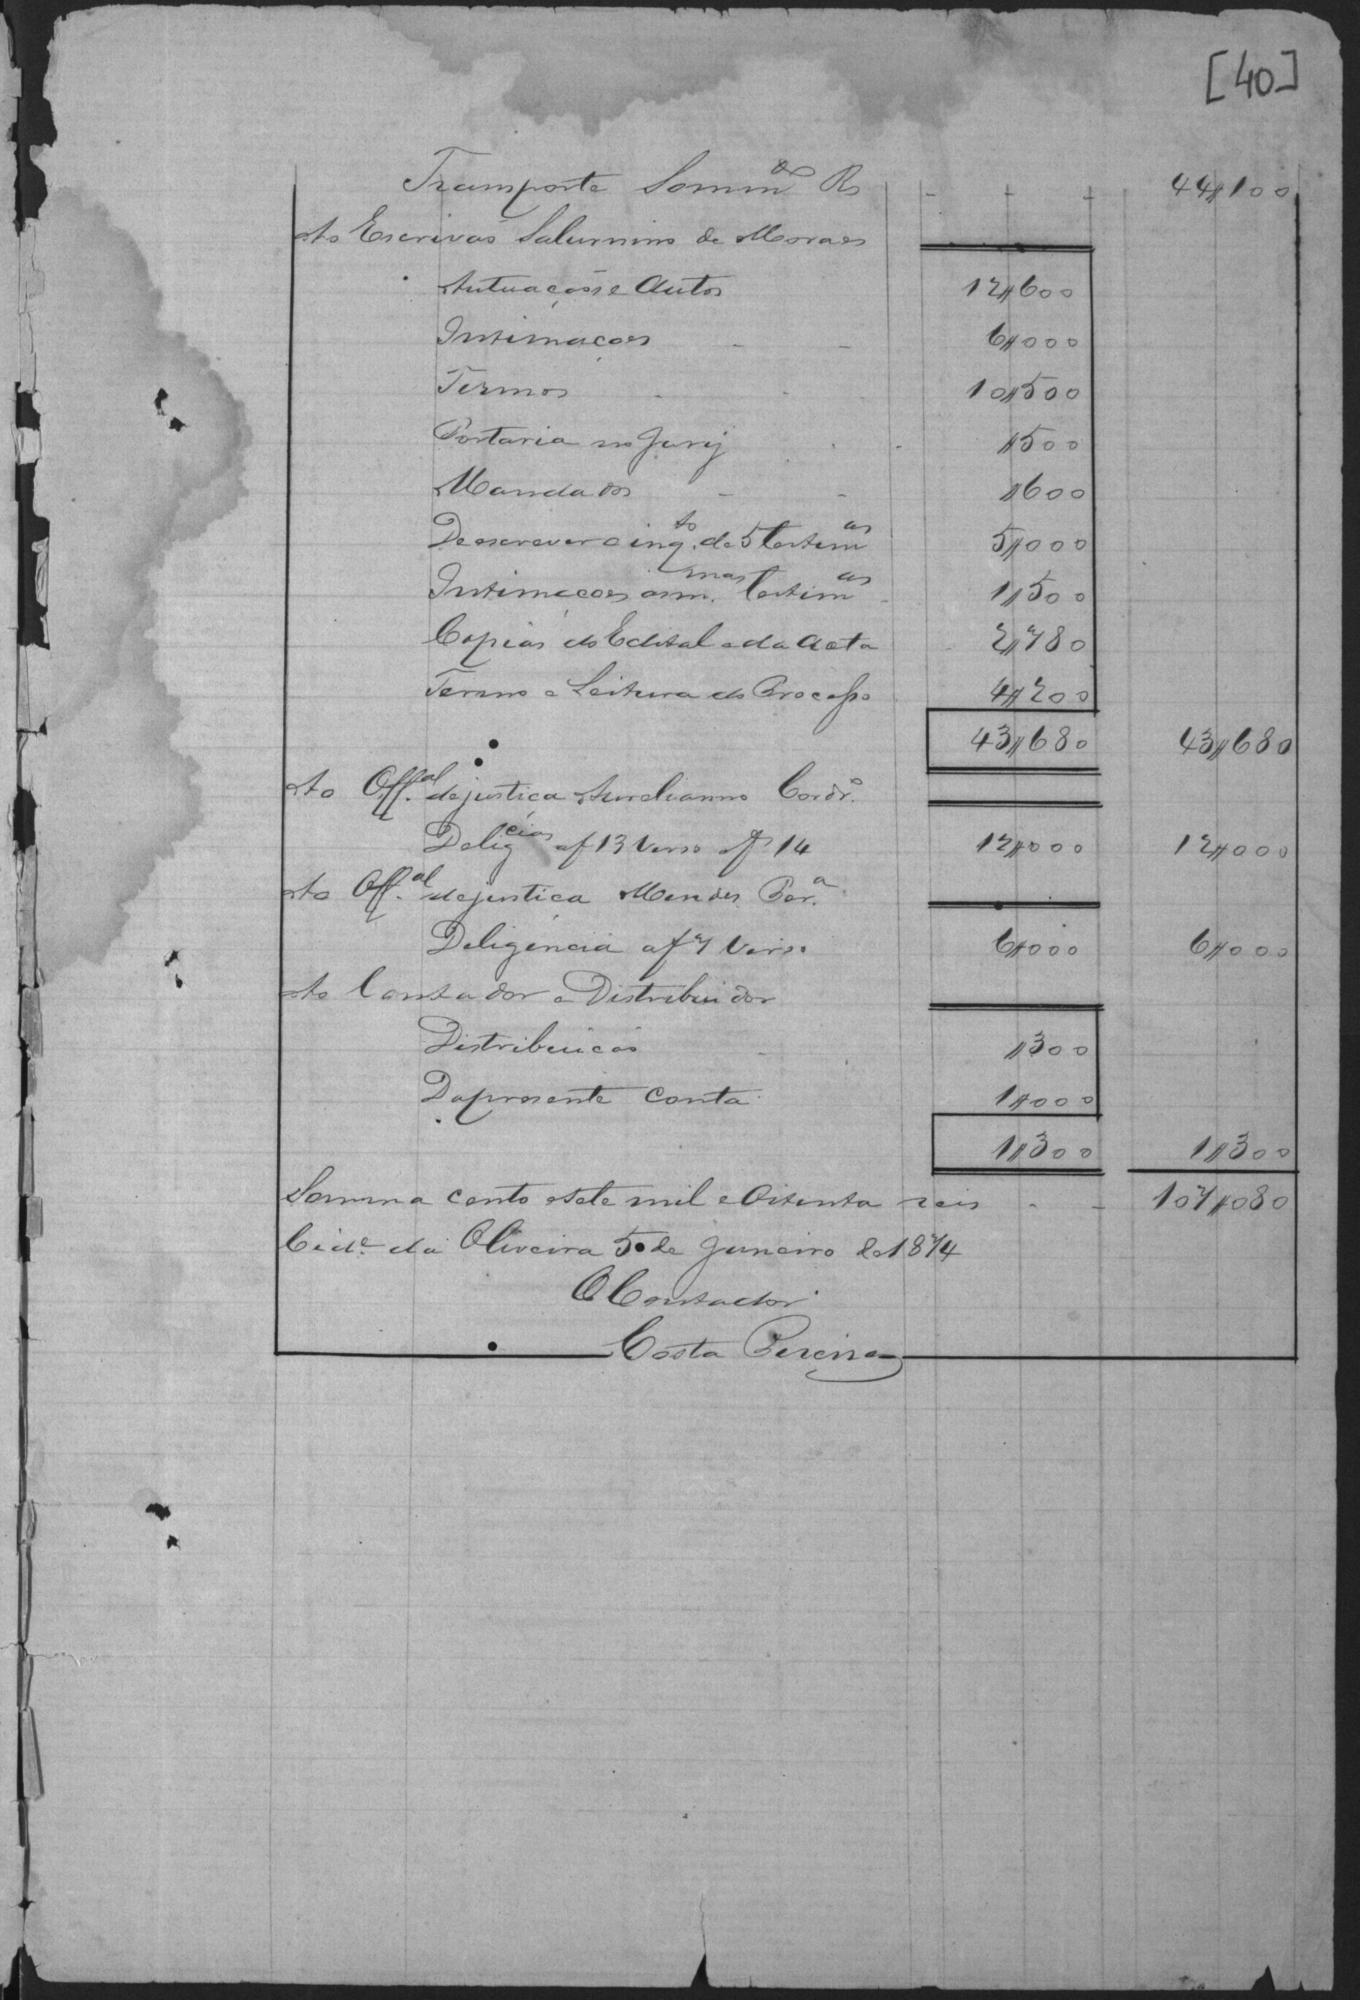 [40]
Transporte Somm^as Rs - - - 44$100
Ao Escrivaõ Saturnino de Moraes
Autuaçaõ e Autos 12$600
Intimaçoes - - 6$000
Termos - - 10$500
Portaria no Jury - - $500
Mandados - - $600
De escrever o inq.^to de 5 testim^as 5$000
Intimaçoes as m.^mas testim^as - 1$500
Copias do Edital e da Acta - 2$780
Termo e Leitura do Processo 4$200
43$680 43$680
Ao Off.^al de justica Aurelianno Cordr.^o
Delig^cias af 13 Verso e f 14 12$000 12$000
Ao Off.^al de justica Mendes Per.^a
Deligencia af 7 Verso 6$000 6$000
Ao Contador e Distribuidor
Distribuicaõ - $300
Da presente conta 1$000
1$300 1$300
Somma cento e sete mil e Oitenta reis - - 107$080
Cid.^e da Oliveira 5 de Janeiro de 1874
O Contador
Costa Pereira